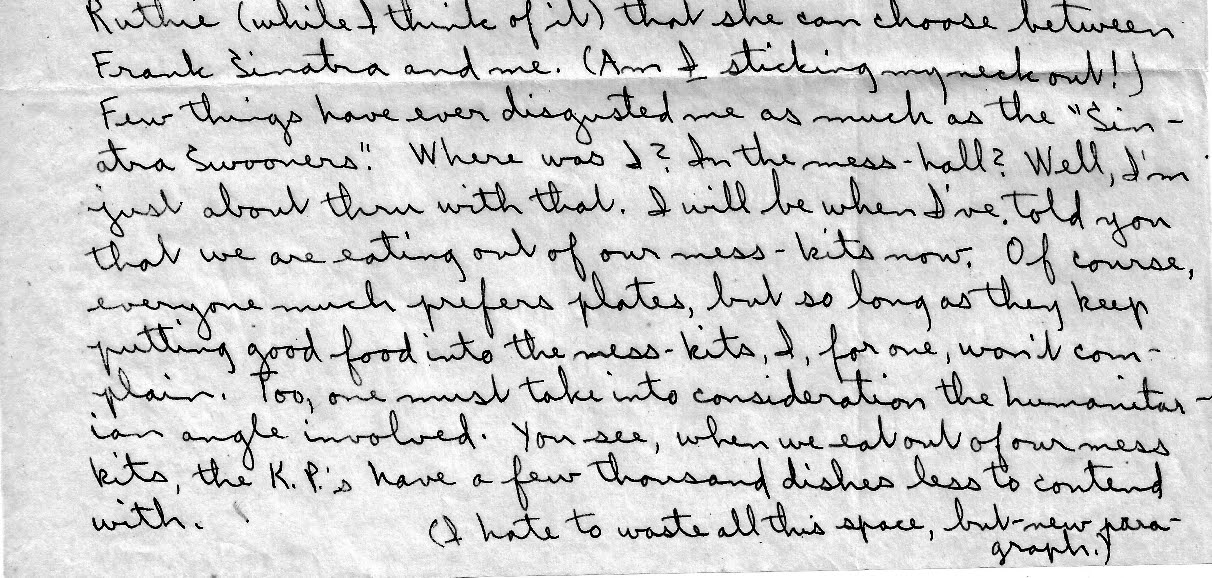 Ruthie (while I think of it) that she can choose between
Frank Sinatra and me. (Am I sticking my neck out!)
Few things have ever disgusted me as much as the "Sin-
atra Swooners". Where was I? In the mess-hall? Well, I'm
just about thru with that. I will be when I've told you
that we are eating out of our mess-kits now. Of course,
everyone much prefers plates, but so long as they keep
putting good food into the mess-kits, I, for one, won't com-
plain. Too, one must take into consideration the humanitar-
ian angle involved. You see, when we eat out of our mess
kits, the K.P.'s have a few thousand dishes less to contend
with.
(I hate to waste all this space, but-new para-
graph.)